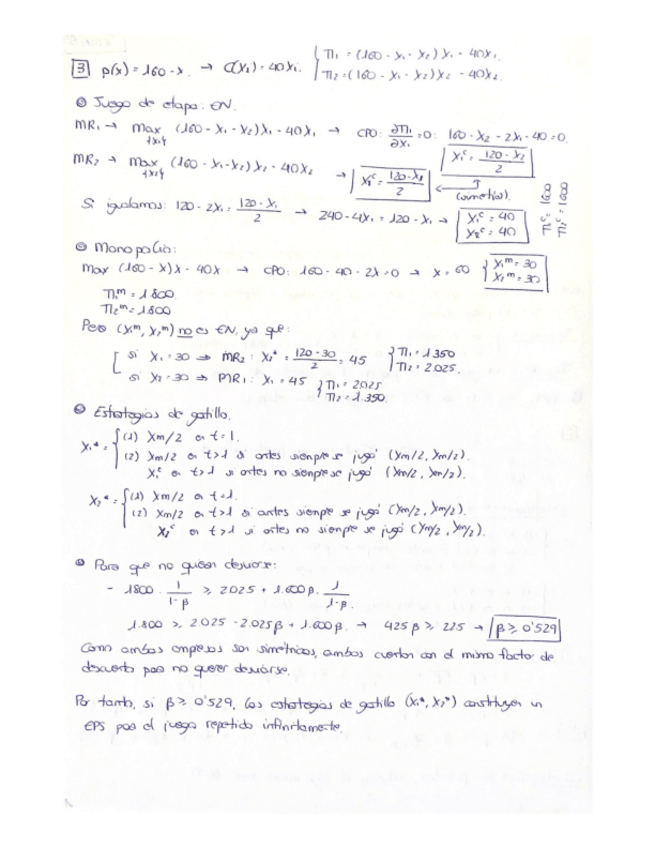 3 p(x) = 160 - x. → C(Xi) = 40Xi. { Π1 = (160 - X1 - X2) X1 - 40X1.
Π2 = (160 - X1 - X2) X2 - 40X2.
Juego de etapa: EN.
MR1 → Max {X1} (160 - X1 - X2) X1 - 40X1 → CPO: ∂Π1/∂X1 = 0: 160 - X2 - 2X1 - 40 = 0.
X1^c = (120 - X2)/2
MR2 → Max {X2} (160 - X1 - X2) X2 - 40X2 → X2^c = (120 - X1)/2 ← (simetría).
Si igualamos: 120 - 2X1 = (120 - X1)/2 → 240 - 4X1 = 120 - X1 → X1^c = 40
X2^c = 40
Π1^c = 1600
Π2^c = 1600
Monopolio:
Max (160 - X) X - 40X → CPO: 160 - 40 - 2X = 0 → X = 60 { X1^m = 30
X2^m = 30
Π1^m = 1800.
Π2^m = 1800
Pero (X1^m, X2^m) no es EN, ya que:
[ si X1 = 30 ⇒ MR2: X2* = (120 - 30)/2 = 45 { Π1 = 1350
Π2 = 2.025.
si X2 = 30 ⇒ MR1: X1 = 45 { Π1 = 2025
Π2 = 1.350.
Estrategias de gatillo.
X1* = { (1) Xm/2 en t = 1.
(2) Xm/2 en t>1 si antes siempre se jugó (Xm/2, Xm/2).
X1^c en t>1 si antes no siempre se jugó (Xm/2, Xm/2).
X2* = { (1) Xm/2 en t=1.
(2) Xm/2 en t>1 si antes siempre se jugó (Xm/2, Xm/2).
X2^c en t>1 si antes no siempre se jugó (Xm/2, Xm/2).
Para que no quieran desviarse:
- 1800 · 1/(1-β) ≥ 2025 + 1.600β · 1/(1-β)
1.800 ≥ 2025 - 2.025β + 1.600β. → 425β ≥ 225 → β ≥ 0'529
Como ambas empresas son simétricas, ambas cuentan con el mismo factor de
descuento para no querer desviarse.
Por tanto, si β ≥ 0'529, las estrategias de gatillo (X1*, X2*) constituyen un
EPS para el juego repetido infinitamente.